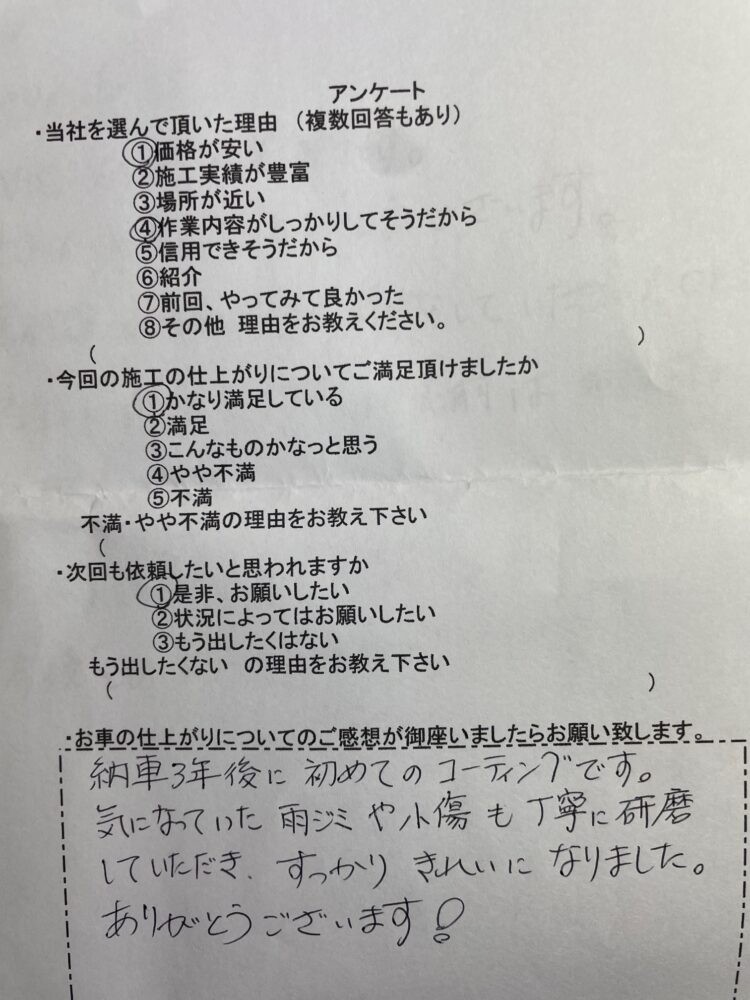 アンケート
・当社を選んで頂いた理由 （複数回答もあり）
①価格が安い
②施工実績が豊富
③場所が近い
④作業内容がしっかりしてそうだから
⑤信用できそうだから
⑥紹介
⑦前回、やってみて良かった
⑧その他 理由をお教えください。
（ ）
・今回の施工の仕上がりについてご満足頂けましたか
①かなり満足している
②満足
③こんなものかなっと思う
④やや不満
⑤不満
不満・やや不満の理由をお教え下さい
（
・次回も依頼したいと思われますか
①是非、お願いしたい
②状況によってはお願いしたい
③もう出したくはない
もう出したくない の理由をお教え下さい
（ ）
・お車の仕上がりについてのご感想が御座いましたらお願い致します。
納車3年後に初めてのコーティングです。
気になっていた雨ジミや小傷も丁寧に研磨
していただき、すっかりきれいになりました。
ありがとうございます！